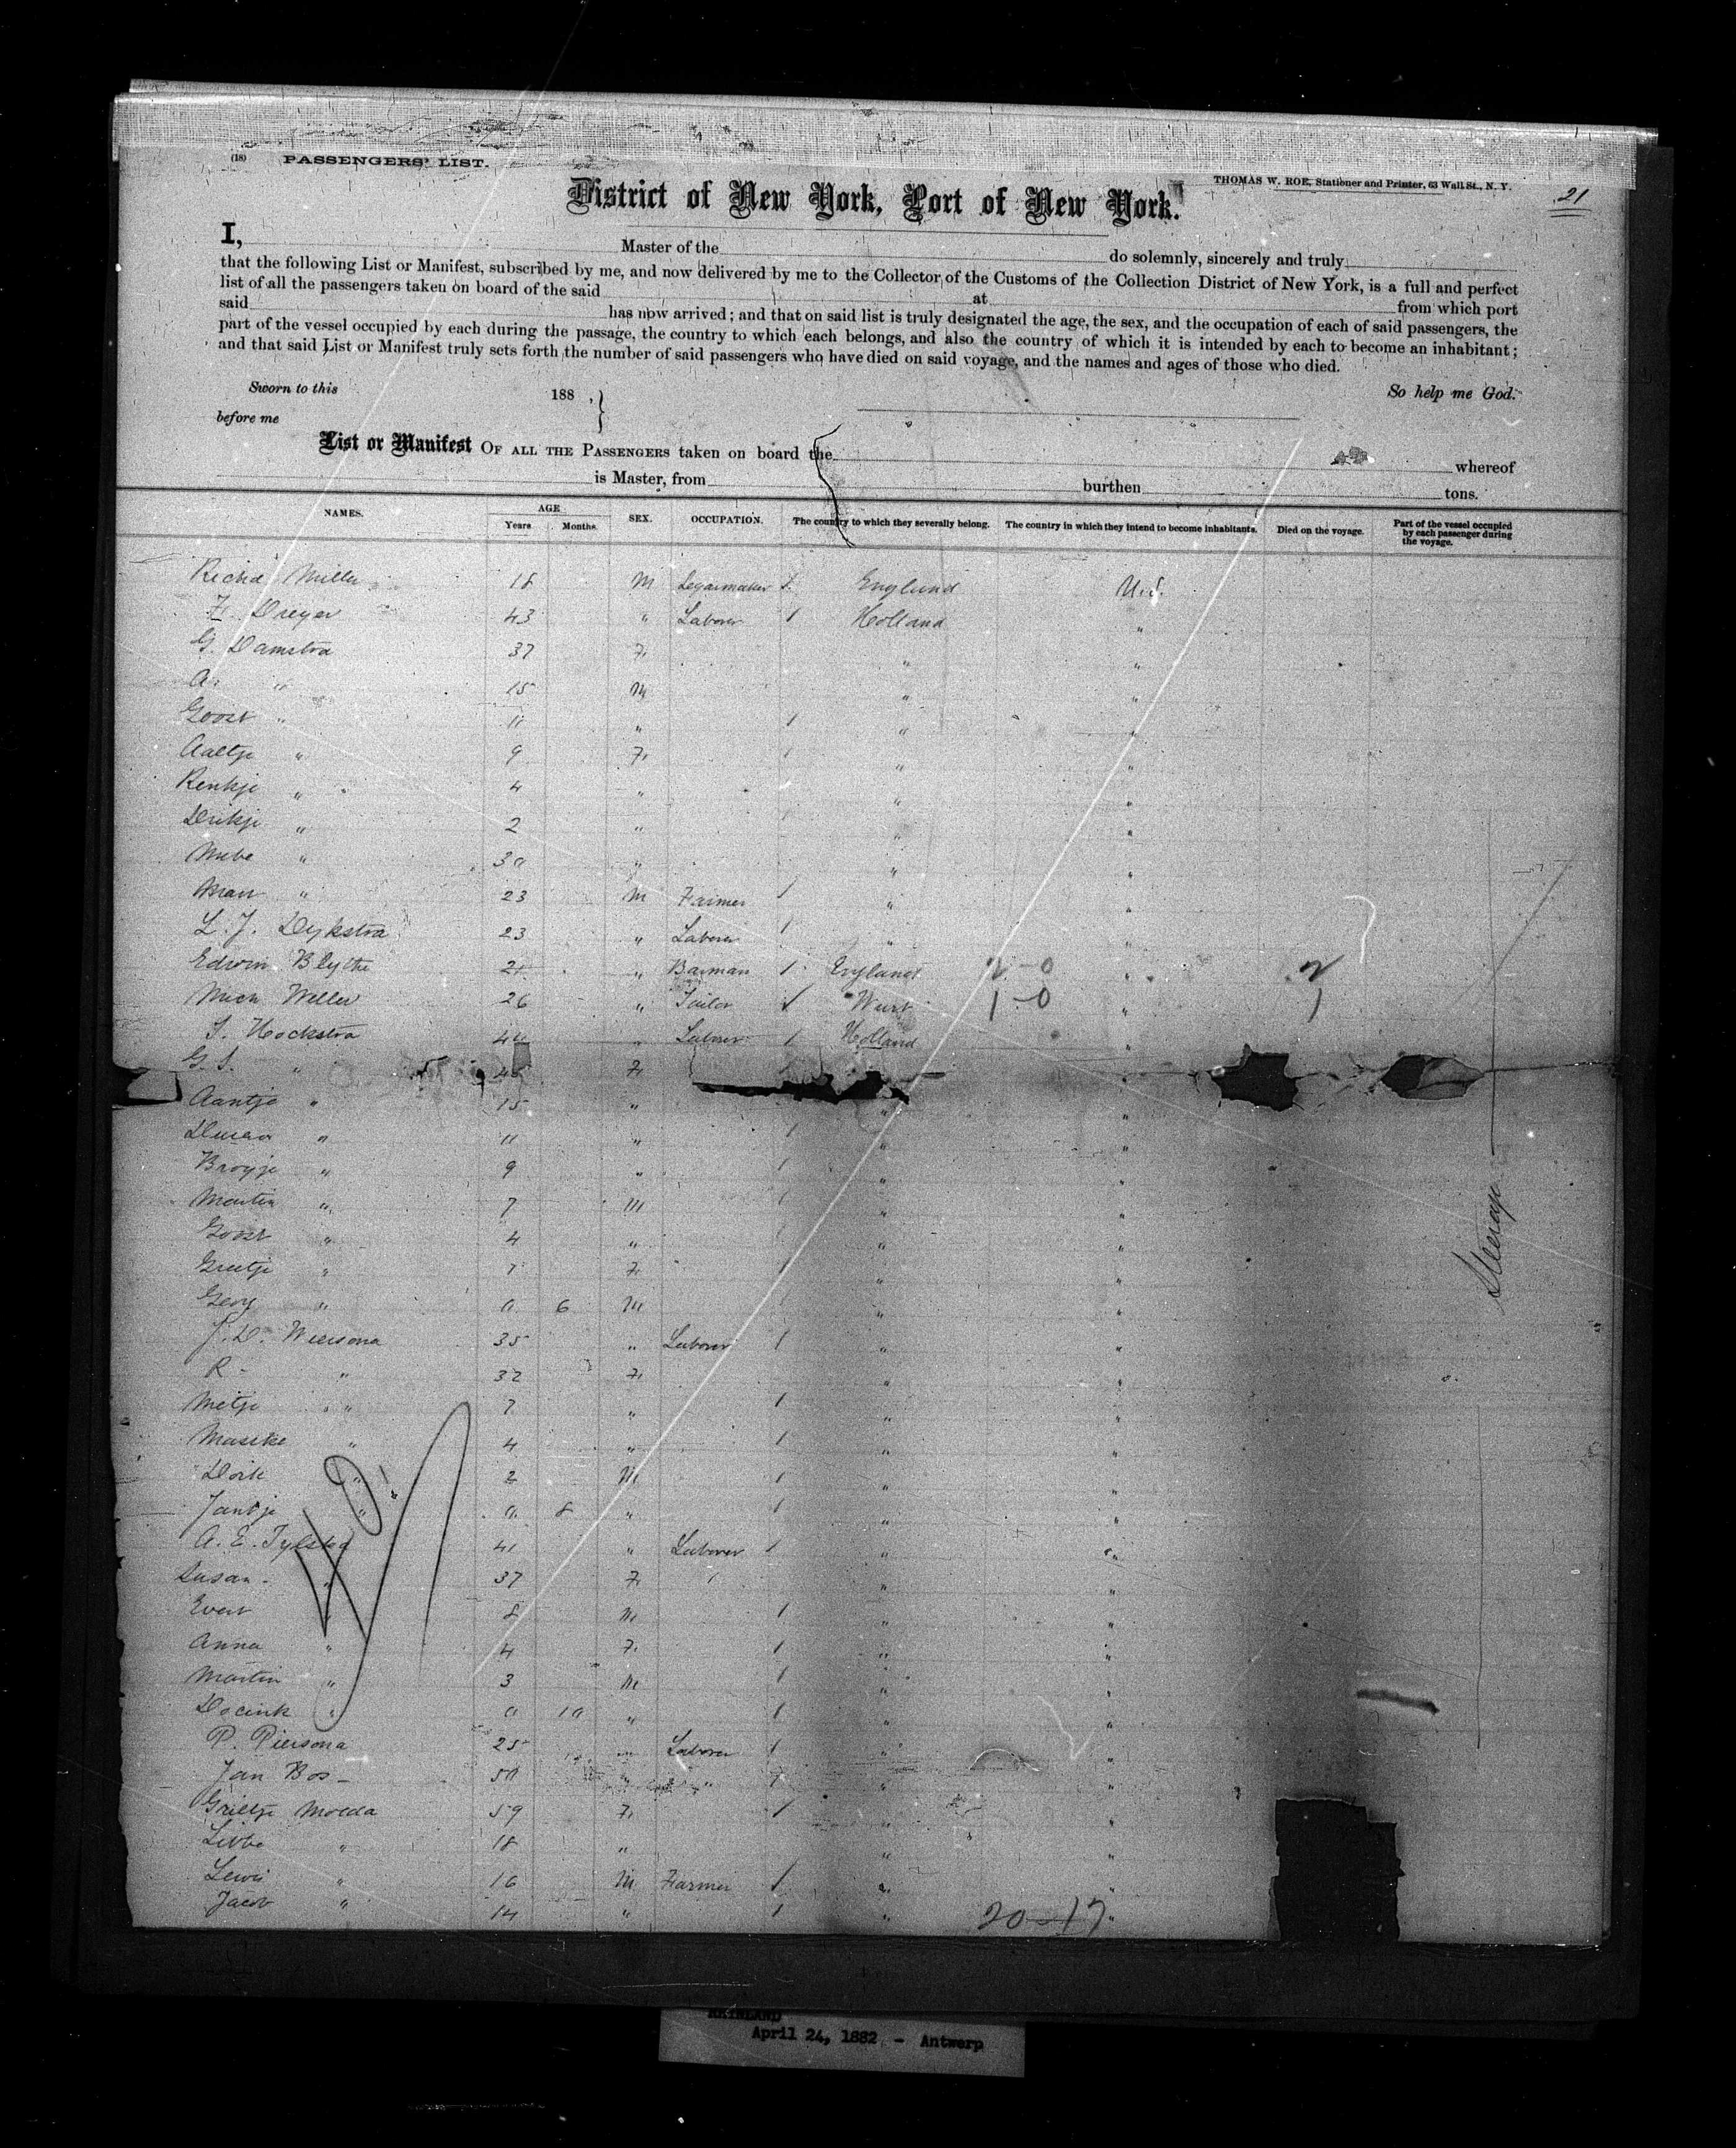 (18) PASSENGERS' LIST.
THOMAS W. ROE, Stationer and Printer, 63 Wall St., N. Y.
21
District of New York, Port of New York.
I, Master of the do solemnly, sincerely and truly
that the following List or Manifest, subscribed by me, and now delivered by me to the Collector of the Customs of the Collection District of New York, is a full and perfect
list of all the passengers taken on board of the said at from which port
said has now arrived; and that on said list is truly designated the age, the sex, and the occupation of each of said passengers, the
part of the vessel occupied by each during the passage, the country to which each belongs, and also the country of which it is intended by each to become an inhabitant;
and that said List or Manifest truly sets forth the number of said passengers who have died on said voyage, and the names and ages of those who died.
Sworn to this 188 , So help me God.
before me
List or Manifest OF ALL THE PASSENGERS taken on board the whereof
is Master, from burthen tons.
NAMES. AGE Years Months. SEX. OCCUPATION. The country to which they severally belong. The country in which they intend to become inhabitants. Died on the voyage. Part of the vessel occupied by each passenger during the voyage.
Richd Miller 18 M Segarmaker 1 England U.S.
F. Dreyer 43 " Laborer 1 Holland "
G. Damstra 37 F. " "
A. " 15 M " "
Goost " 11 " 1 " "
Aaltje " 9 F. 1 " "
Renkje " 4 " " "
Drikje " 2 " " "
" 30 " " "
" 23 M Farmer 1 " "
L. J. Dykstra 23 " Laborer 1 " "
Edwin Blythe 21 " Barman 1 England 2-0 " 2
Mich Weller 26 " Tailor 1 Wurt 1-0 " 1
S. Hockstra 44 " Laborer 1 Holland "
G. S. " 45 F. "
Aantje " 15 " " "
" 11 " 1 " "
" 9 " 1 " "
Martin " 7 M 1 " "
Goost " 4 " " "
Greetje " 1 F. 1 " "
Georg " 0 6 M " "
J. D. Wiersona 35 " Laborer 1 " "
R - " 32 F. " "
Metje " 7 " 1 " "
Maseke " 4 " 1 " "
Dirk " 2 M 1 " "
Jantje " 0 8 " 1 " "
A. E. 41 " Laborer 1 " "
Susan - " 37 F. " "
Evert " 8 M 1 " "
Anna " 4 F. 1 " "
Martin " 3 M 1 " "
" 0 10 " 1 " "
P. Piersona 25 " Laborer 1 " "
Jan Bos - 50 " " 1 " "
Grietje Molda 59 F. 1 " "
Libbe " 18 " " "
Lewis " 16 M Farmer 1 " "
Jacob " 14 " 1 " 20-17 "
Steerage
April 24, 1882 - Antwerp